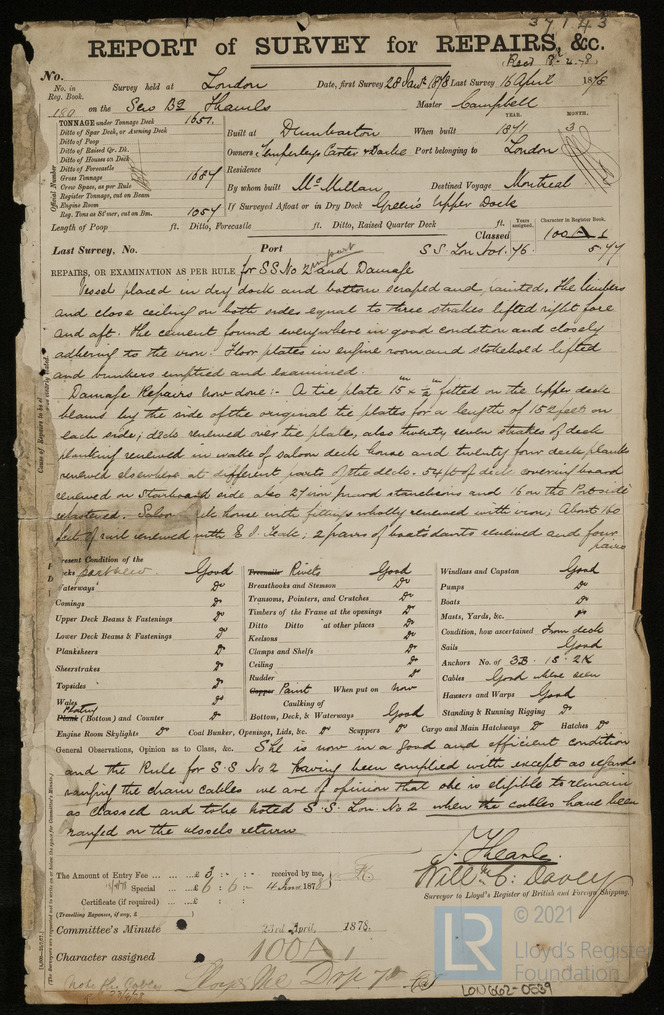 37143
REPORT of SURVEY for REPAIRS, &c.
No.
No. in Reg. Book. Survey held at London Date, first Survey 28 Jany 1878 Last Survey 16 April 1878
180 on the Scw Bq Thames Master Campbell
TONNAGE under Tonnage Deck 1657.
Ditto of Spar Deck, or Awning Deck
Ditto of Poop
Ditto of Raised Qr. Dk.
Ditto of Houses on Deck
Ditto of Forecastle
Gross Tonnage 1687
Crew Space, as per Rule
Register Tonnage, cut on Beam
Engine Room
Reg. Tons as St'mer, cut on Bm. 1057
Official Number
YEAR. MONTH.
Built at Dumbarton When built 1871 3
Owners Temperleys Carter & Darke Port belonging to London
Residence
By whom built McMillan Destined Voyage Montreal
If Surveyed Afloat or in Dry Dock Green's Upper Dock
Length of Poop ft. Ditto, Forecastle ft. Ditto, Raised Quarter Deck ft.
Years assigned. Character in Register Book.
Classed 100 A 1
Last Survey, No. Port S S Lon No1. 76. 5.77
REPAIRS, OR EXAMINATION AS PER RULE for SS No 2 in part and Damage
Vessel placed in dry dock and bottom scraped and painted. The limbers
and close ceiling on both sides equal to three strakes lifted right fore
and aft. The cement found everywhere in good condition and closely
adhering to the iron. Floor plates in engine room and stokehold lifted
and bunkers emptied and examined.
Damage Repairs now done:- A tie plate 15" x ½" fitted on the upper deck
beams by the side of the original tie plates for a length of 152 feet on
each side; deck renewed over tie plate, also twenty seven strakes of deck
planking renewed in wake of saloon deck house and twenty four deck planks
renewed elsewhere at different parts of the deck. 54 ft of deck covering board
renewed on starboard side also 27 iron stanchions and 16 on the Port side
Saloon house with fittings wholly renewed with iron; About 160
feet of rail renewed with E I Teak; 2 pairs of boats davits renewed and four
pairs
Present Condition of the
Decks part new Good
Waterways Do
Comings Do
Upper Deck Beams & Fastenings Do
Lower Deck Beams & Fastenings Do
Planksheers Do
Sheerstrakes Do
Topsides Do
Wales Do
Plating
Plank (Bottom) and Counter Do
Treenails Rivets Good
Breasthooks and Stemson Do
Transoms, Pointers, and Crutches Do
Timbers of the Frame at the openings Do
Ditto Ditto at other places Do
Keelsons Do
Clamps and Shelfs Do
Ceiling Do
Rudder Do
Copper Paint When put on now
Caulking of
Bottom, Deck, & Waterways Good
Windlass and Capstan Good
Pumps Do
Boats Do
Masts, Yards, &c. Do
Condition, how ascertained From deck
Sails Good
Anchors No. of 3B. 1S. 2K
Cables Good where seen
Hawsers and Warps Good
Standing & Running Rigging Do
Engine Room Skylights Do Coal Bunker, Openings, Lids, &c. Do Scuppers Do Cargo and Main Hatchways Do Hatches Do
General Observations, Opinion as to Class, &c. She is now in a good and efficient condition
and the Rule for S S No 2 having been complied with except as regards
ranging the chain cables we are of opinion that she is eligible to remain
as classed and to be noted S.S. Lon. No 2 when the cables have been
ranged on the vessels return
The Amount of Entry Fee ... £ 3 : - : - received by me,
Special ... £ 6 : 6 : - 4 June 1878
Certificate (if required) ... £ : :
(Travelling Expenses, if any, £ )
Will m C. Davey
Surveyor to Lloyd's Register of British and Foreign Shipping.
Committee's Minute 23rd April, 1878.
Character assigned 100 A 1
LON662-0539
© 2021
LR
Lloyd's Register
Foundation